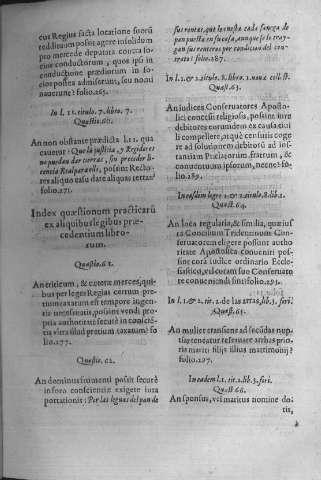 cus Regius facta locatione suorū
reddituum possit agere insolidum
pro mercede deputata contra so-
cios conductorum, quos ipsi in
conductione prædiorum in so-
cios postea admiserunt, seu nomi
nauerunt? folio.265.
In l. 11. titulo. 7. libro. 7.
Quæstio.61.
An non obstante prædicta l.11. qua
cauetur: Que la justicia, y Regidores
no puedan dar tierras, sin preceder li-
cencia Real para ello, possint Recto-
res aliquo casu dare aliquas terras?
folio.271.
Index quæstionum practicarū
ex aliquibus legibus præ-
cedentium libro-
rum.
Quæstio.62.
An triticum, & cæteræ merces, qui-
bus per leges Regias certum pre-
tium taxatum est tempore ingen-
tis necessitatis, possint vendi pro-
pria authoritate securè in conscie-
tia vltra illud pretium taxatum? fo
lio.277.
Quæstio. 62.
An dominus frumenti possit securè
in foro conscientiæ exigere iuxta
portationis: Por las leguas del pan de
sus rentas, que le cuesta cada hanega de
pan puesta en su casa, aunque se lo tray-
gan sus renteros por condicion del con-
trato? folio.287.
In l.1.&.2.titulo.8.libro.1.nouæ coll.st.
Quæst.63.
An Iudices Conseruatores Aposto-
lici concessi religiosis, possint iure
debitores eorumdem ex causa ciui
li compellere, atque censuris coge
re ad solutionem debitorū ad in-
stantiam Prælatorum fratrum, &
conuentuum ipsorum, necne? fo-
lio.289.
In eisdem legib.1.&.2.titulo.8.lib.1.
Quæst.64.
An loca regularia, & similia, quæ ius
ex Concilium Tridentinum Con-
seruatorem eligere possunt autho
ritate Apostolica conueniri pos-
sint corā iudice ordinario Eccle-
siastico, vel coram suo Conseruato
re conueniendi sint? folio.293.
In l.1.&.2.tit.2.de las arras,lib.3.fori.
Quæst.65.
An mulier transiens ad secudas nup
tias teneatur reseruare arrhas prio-
ris mariti filijs illius matrimonij?
folio.297.
In eadem l.1.tit.2.lib.3.fori.
Quæst.66.
An sponsus, vel maritus nomine do
tis,